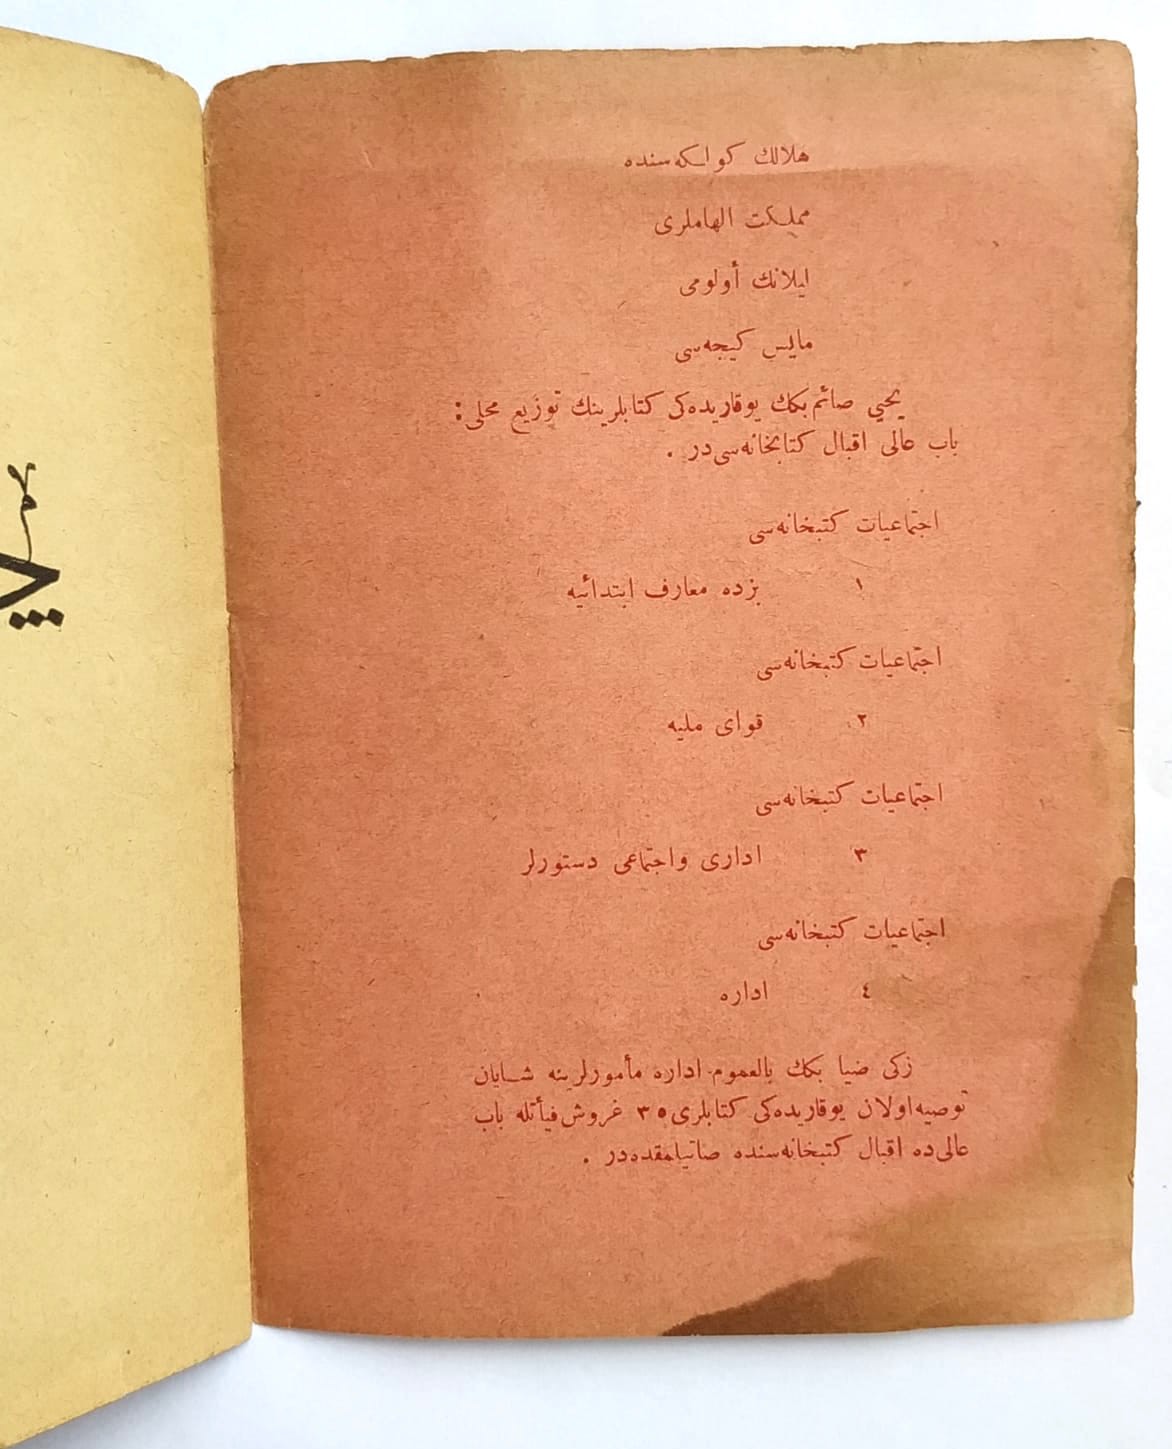 هلالك كولكه‌سنده
مملكت الهاملری
ايلانك أولومی
مايس كيجه‌سی
يحيي صائم بكك يوقاريده‌كی كتابلرينك توزيع محلی :
باب عالی اقبال كتابخانه‌سی‌در .
اجتماعيات كتبخانه‌سی
١ بزده معارف ابتدائيه
اجتماعيات كتبخانه‌سی
٢ قوای مليه
اجتماعيات كتبخانه‌سی
٣ اداری واجتماعی دستورلر
اجتماعيات كتبخانه‌سی
٤ اداره
زكی ضيا بكك بالعموم اداره مأمورلرينه شايان
توصيه اولان يوقاريده‌كی كتابلری ٣٥ غروش فيأتله باب
عالی‌ده اقبال كتبخانه‌سنده صاتيلمقده‌در .